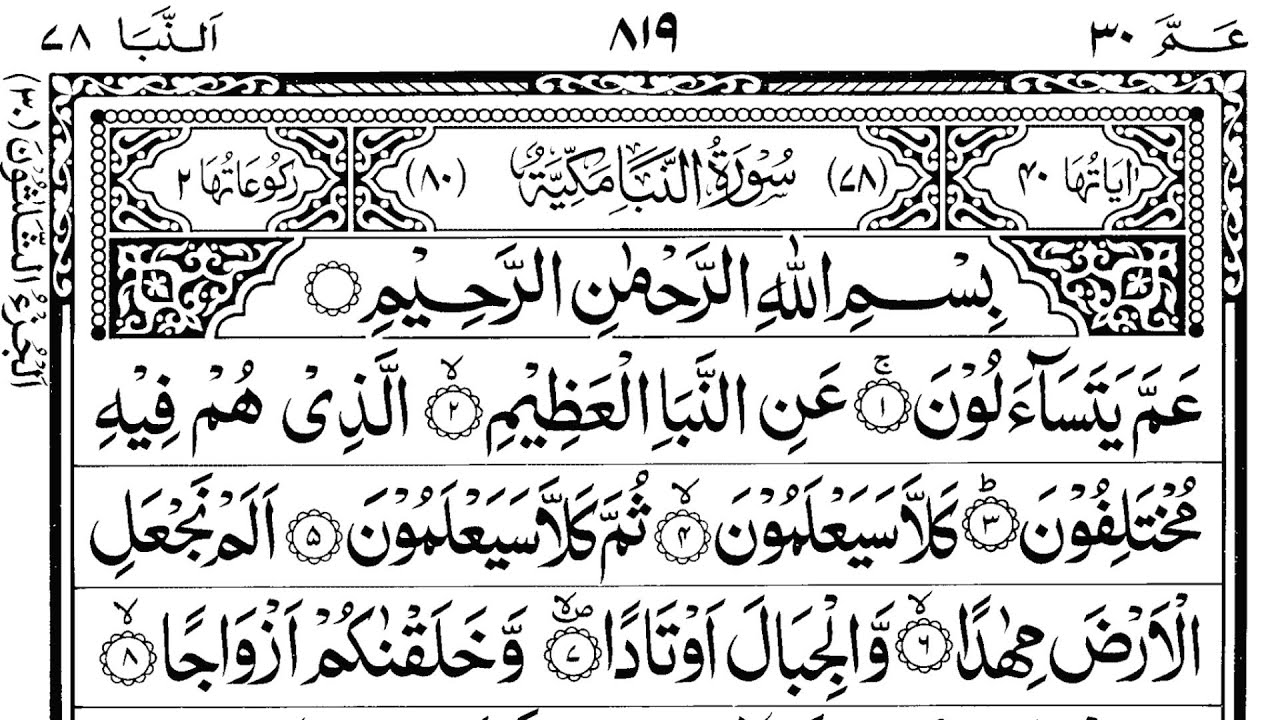 عَـمَّ ٣٠ ٨١٩ اَلنَّبَا ٧٨
اٰيَاتُهَا ٤٠ (٧٨) سُوْرَةُ النَّبَاِ مَكِّيَّةٌ (٨٠) رُكُوْعَاتُهَا ٢
بِسْمِ اللّٰهِ الرَّحْمٰنِ الرَّحِيْمِ
عَمَّ يَتَسَآءَلُوْنَ ۚ‏ ١ عَنِ النَّبَاِ الْعَظِيْمِ ۙ‏ ٢ الَّذِىْ هُمْ فِيْهِ
مُخْتَلِفُوْنَ ؕ‏ ٣ كَلَّا سَيَعْلَمُوْنَ ۙ‏ ٤ ثُمَّ كَلَّا سَيَعْلَمُوْنَ ٥ اَلَمْ نَجْعَلِ
الْاَرْضَ مِهٰدًا ۙ‏ ٦ وَّالْجِبَالَ اَوْتَادًا ۪ۙ‏ ٧ وَّخَلَقْنٰكُمْ اَزْوَاجًا ۙ‏ ٨
اَلْجُزْءُ الثَّلَاثُوْنَ (٣٠)